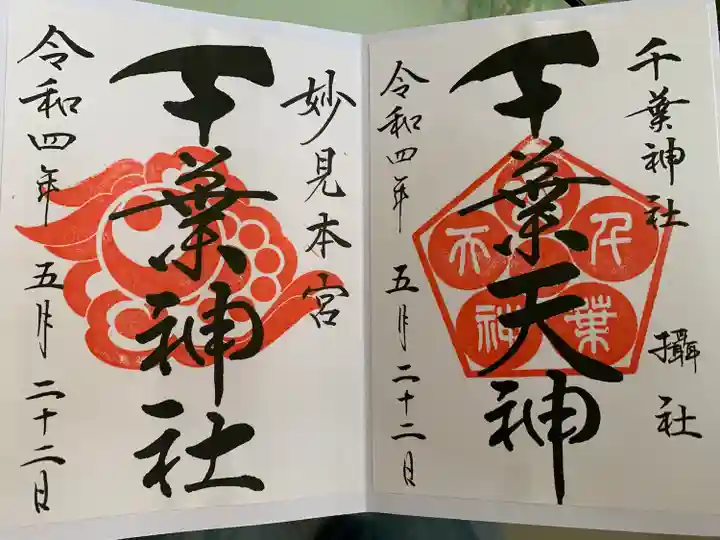 千葉神社
攝社
千葉天神
千葉
天神
令和四年 五月二十二日
妙見本宮
千葉神社
令和四年 五月二十二日